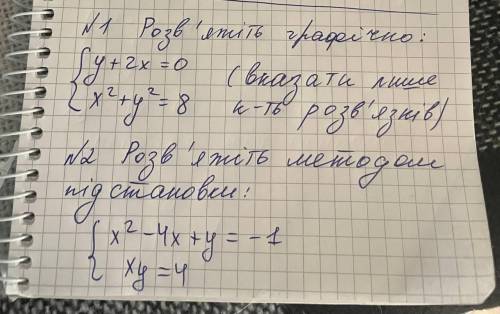 №1 Розв'яжіть графічно:
{ y + 2x = 0 (вказати лише
{ x² + y² = 8 к-ть розв'язків)
№2 Розв'яжіть методом
підстановки:
{ x² - 4x + y = -1
{ xy = 4